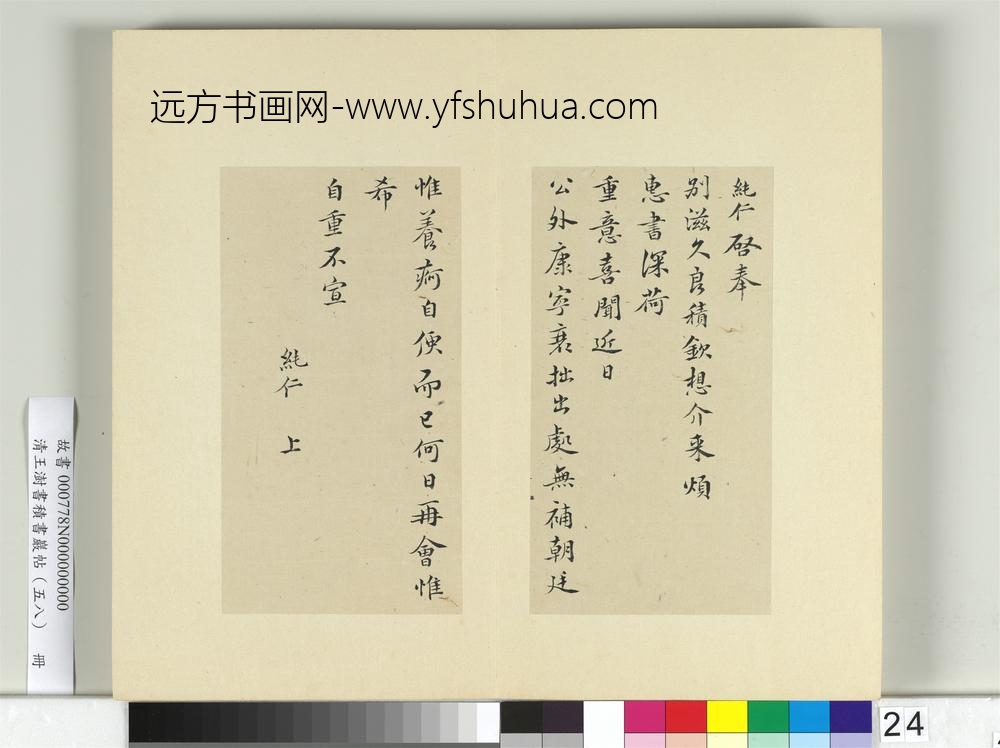 远方书画网-www.yfshuhua.com
純仁啓奉
別滋久良積欽想介来煩
惠書深荷
重意喜聞近日
公外康寧衰拙出處無補朝廷
惟養疴自便而已何日再會惟
希
自重不宣
純仁 上
故書 000778N000000000
清王澍書積書巖帖(五八) 冊
24